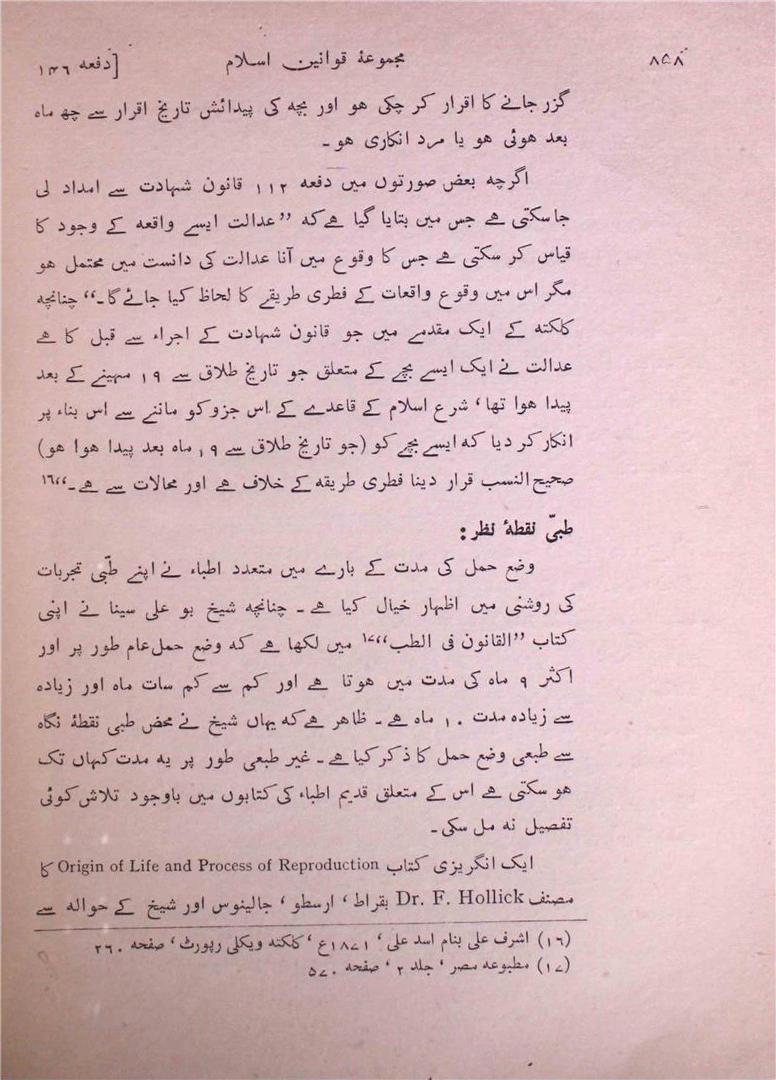 ۸۵۸ مجموعۂ قوانین اسلام [دفعہ ۱۴۶
گزر جانے کا اقرار کر چکی ہو اور بچہ کی پیدائش تاریخ اقرار سے چھ ماہ
بعد ہوئی ہو یا مرد انکاری ہو۔
اگرچہ بعض صورتوں میں دفعہ ۱۱۲ قانون شہادت سے امداد لی
جا سکتی ہے جس میں بتایا گیا ہے کہ ”عدالت ایسے واقعہ کے وجود کا
قیاس کر سکتی ہے جس کا وقوع میں آنا عدالت کی دانست میں محتمل ہو
مگر اس میں وقوع واقعات کے فطری طریقے کا لحاظ کیا جائے گا۔“ چنانچہ
کلکتہ کے ایک مقدمے میں جو قانون شہادت کے اجراء سے قبل کا ہے
عدالت نے ایک ایسے بچے کے متعلق جو تاریخ طلاق سے ۱۹ مہینے کے بعد
پیدا ہوا تھا، شرع اسلام کے قاعدے کے اس جزو کو ماننے سے اس بناء پر
انکار کر دیا کہ ایسے بچے کو (جو تاریخ طلاق سے ۱۹ ماہ بعد پیدا ہوا ہو)
صحیح النسب قرار دینا فطری طریقہ کے خلاف ہے اور محالات سے ہے۔“۱۶
طبّی نقطۂ نظر:
وضع حمل کی مدت کے بارے میں متعدد اطباء نے اپنے طبّی تجربات
کی روشنی میں اظہار خیال کیا ہے۔ چنانچہ شیخ بو علی سینا نے اپنی
کتاب ”القانون فی الطب“۱۷ میں لکھا ہے کہ وضع حمل عام طور پر اور
اکثر ۹ ماہ کی مدت میں ہوتا ہے اور کم سے کم سات ماہ اور زیادہ
سے زیادہ مدت ۱۰ ماہ ہے۔ ظاہر ہے کہ یہاں شیخ نے محض طبی نقطۂ نگاہ
سے طبعی وضع حمل کا ذکر کیا ہے۔ غیر طبعی طور پر یہ مدت کہاں تک
ہو سکتی ہے اس کے متعلق قدیم اطباء کی کتابوں میں باوجود تلاش کوئی
تفصیل نہ مل سکی۔
ایک انگریزی کتاب Origin of Life and Process of Reproduction کا
مصنف Dr. F. Hollick بقراط، ارسطو، جالینوس اور شیخ کے حوالہ سے
(۱۶) اشرف علی بنام اسد علی، ۱۸۷۱ع، کلکتہ ویکلی رپورٹ، صفحہ ۲۶۰
(۱۷) مطبوعہ مصر، جلد ۲، صفحہ ۵۷۰